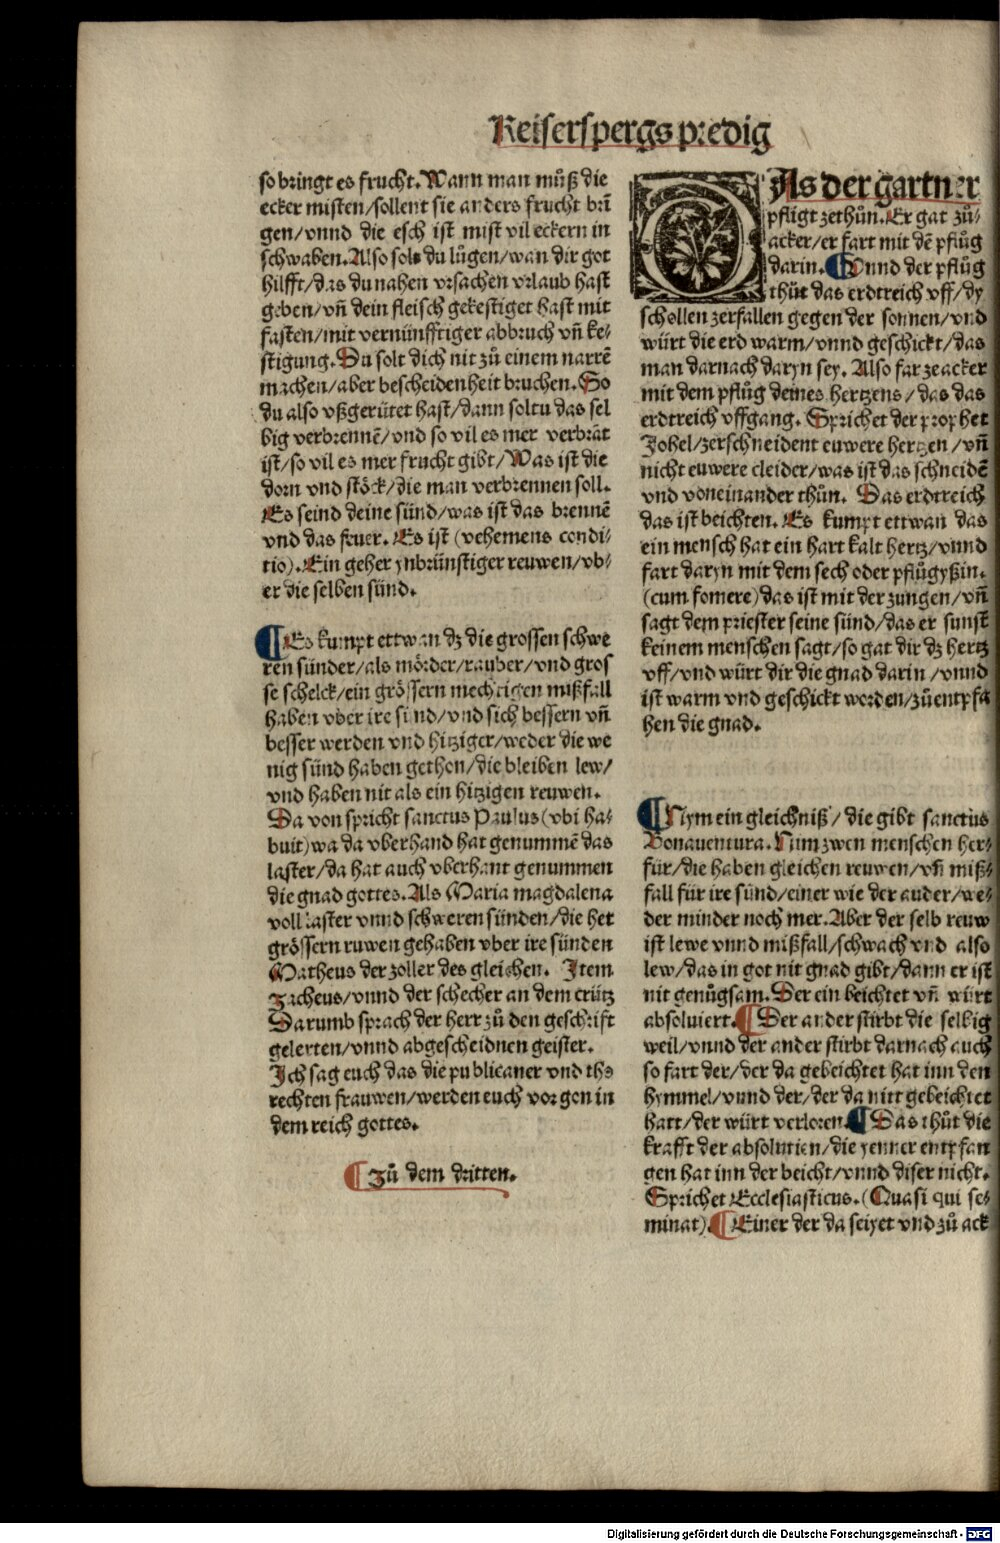 Keiserspergs predig
so bringt es frucht. Wann man můß die
ecker misten/sollent sie anders frucht brī
gen/vnnd die esch ist mist vil eckern in
schwaben. Also sols du lůgen/wan dir got
hilfft/das du nahen vrsachen vrlaub hast
geben/vñ dein fleisch gekestiget hast mit
fasten/mit vernünfftiger abbruch vñ ke⸗
stigung. Du solt dich nit zů einem narrē
machen/aber bescheidenheit bruchen. So
du also vßgerütet hast/dann soltu das sel
big verbrennē/vnd so vil es mer verbrāt
ist/so vil es mer frucht gibt/Was ist die
dorn vnd stöck/die man verbrennen soll.
Es seind deine sünd/was ist das brennē
vnd das feuer. Es ist (vehemens condi⸗
tio). Ein geher ynbrünstiger reuwen/vb⸗
er die selben sünd.
¶ Es kumpt ettwan dz die grossen schwe
ren sünder/als mörder/rauber/vnd gros
se schelck/ein grössern mechtigen mißfall
haben vber ire sünd/vnd sich bessern vñ
besser werden vnd hitziger/weder die we
nig sünd haben gethon/die bleiben lew/
vnd haben nit als ein hitzigen reuwen.
Da von spricht sanctus Paulus (vbi ha⸗
buit) wa da vberhand hat genummē das
laster/da hat auch vberhant genummen
die gnad gottes. Als Maria magdalena
voll laster vnnd schweren sünden/die het
grössern ruwen gehaben vber ire sünden
Matheus der zoller des gleichen. Item
Zacheus/vnnd der schecher an dem crütz
Darumb sprach der herr zů den geschrift
gelerten/vnnd abgescheidnen geister.
Ich sag euch das die publicaner vnd
rechten frauwen/werden euch vor gon in
dem reich gottes.
¶ Zů dem dritten.
Als der gartner
pfligt zethůn. Er gat zů⸗
acker/er fart mit dē pflůg
darin. ¶ Vnnd der pflůg
thůt das erdtreich vff/dy
schollen zerfallen gegen der sonnen/vnd
würt die erd warm/vnnd geschickt/das
man darnach daryn sey. Also far ze acker
mit dem pflůg deines hertzens/das das
erdtreich vffgang. Sprichet der prophet
Johel/zerschneident euwere hertzen/vñ
nicht euwere cleider/was ist das schneidē
vnd voneinander thůn. Das erdtreich
das ist beichten. Es kumpt ettwan das
ein mensch hat ein hart kalt hertz/vnnd
fart daryn mit dem sech oder pflůgyßin.
(cum fomere) das ist mit der zungen/vñ
sagt dem priester seine sünd/das er sunst
keinem menschen sagt/so gat dir dz hertz
vff/vnd würt dir die gnad darin/vnnd
ist warm vnd geschickt worden/zů entpfa
hen die gnad.
¶ Nym ein gleichniß/die gibt sanctus
Bonauentura. Nim zwen menschen her⸗
für/die haben gleichen reuwen/vñ miß⸗
fall für ire sünd/einer wie der ander/we⸗
der minder noch mer. Aber der selb reuw
ist lewe vnnd mißfall/schwach vnd also
lew/das in got nit gnad gibt/dann er ist
nit genůgsam. Der ein beichtet vñ würt
absoluiert. ¶ Der ander stirbt die selbig
weil/vnnd der ander stirbt darnach auch
so fart der/der da gebeichtet hat inn den
hymmel/vnnd der/der da nitt gebeichtet
hatt/der würt verloren. ¶ Das thůt die
krafft der absolution/die yenner entpfan
gen hat inn der beicht/vnnd diser nicht.
Sprichet Ecclesiasticus. (Quasi qui se⸗
minat) ¶ Einer der da seiyet vnd zů ack
Digitalisierung gefördert durch die Deutsche Forschungsgemeinschaft - DFG